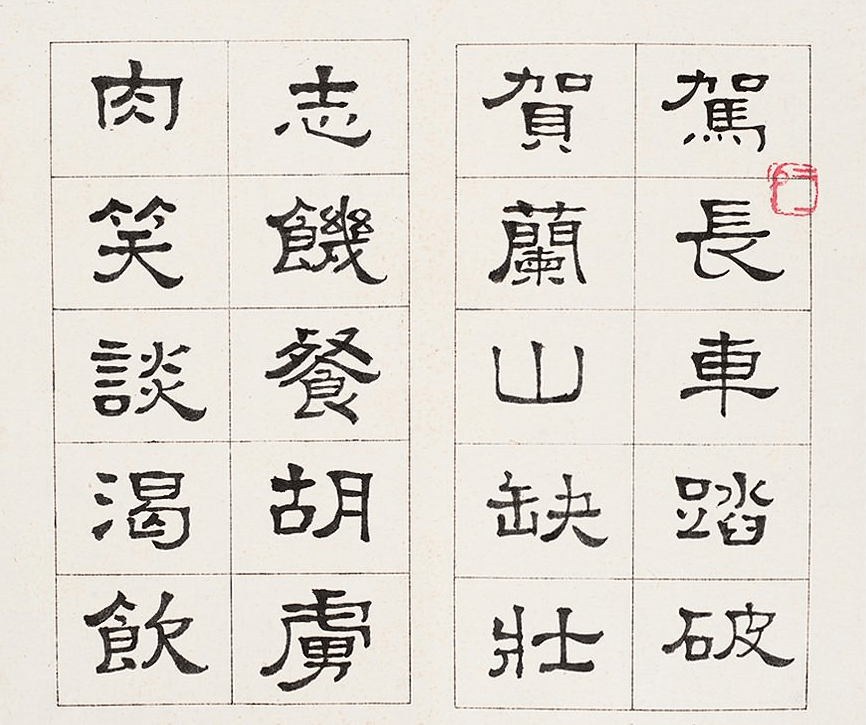 駕長車踏破
賀蘭山缺壯
志饑餐胡虜
肉笑談渴飲